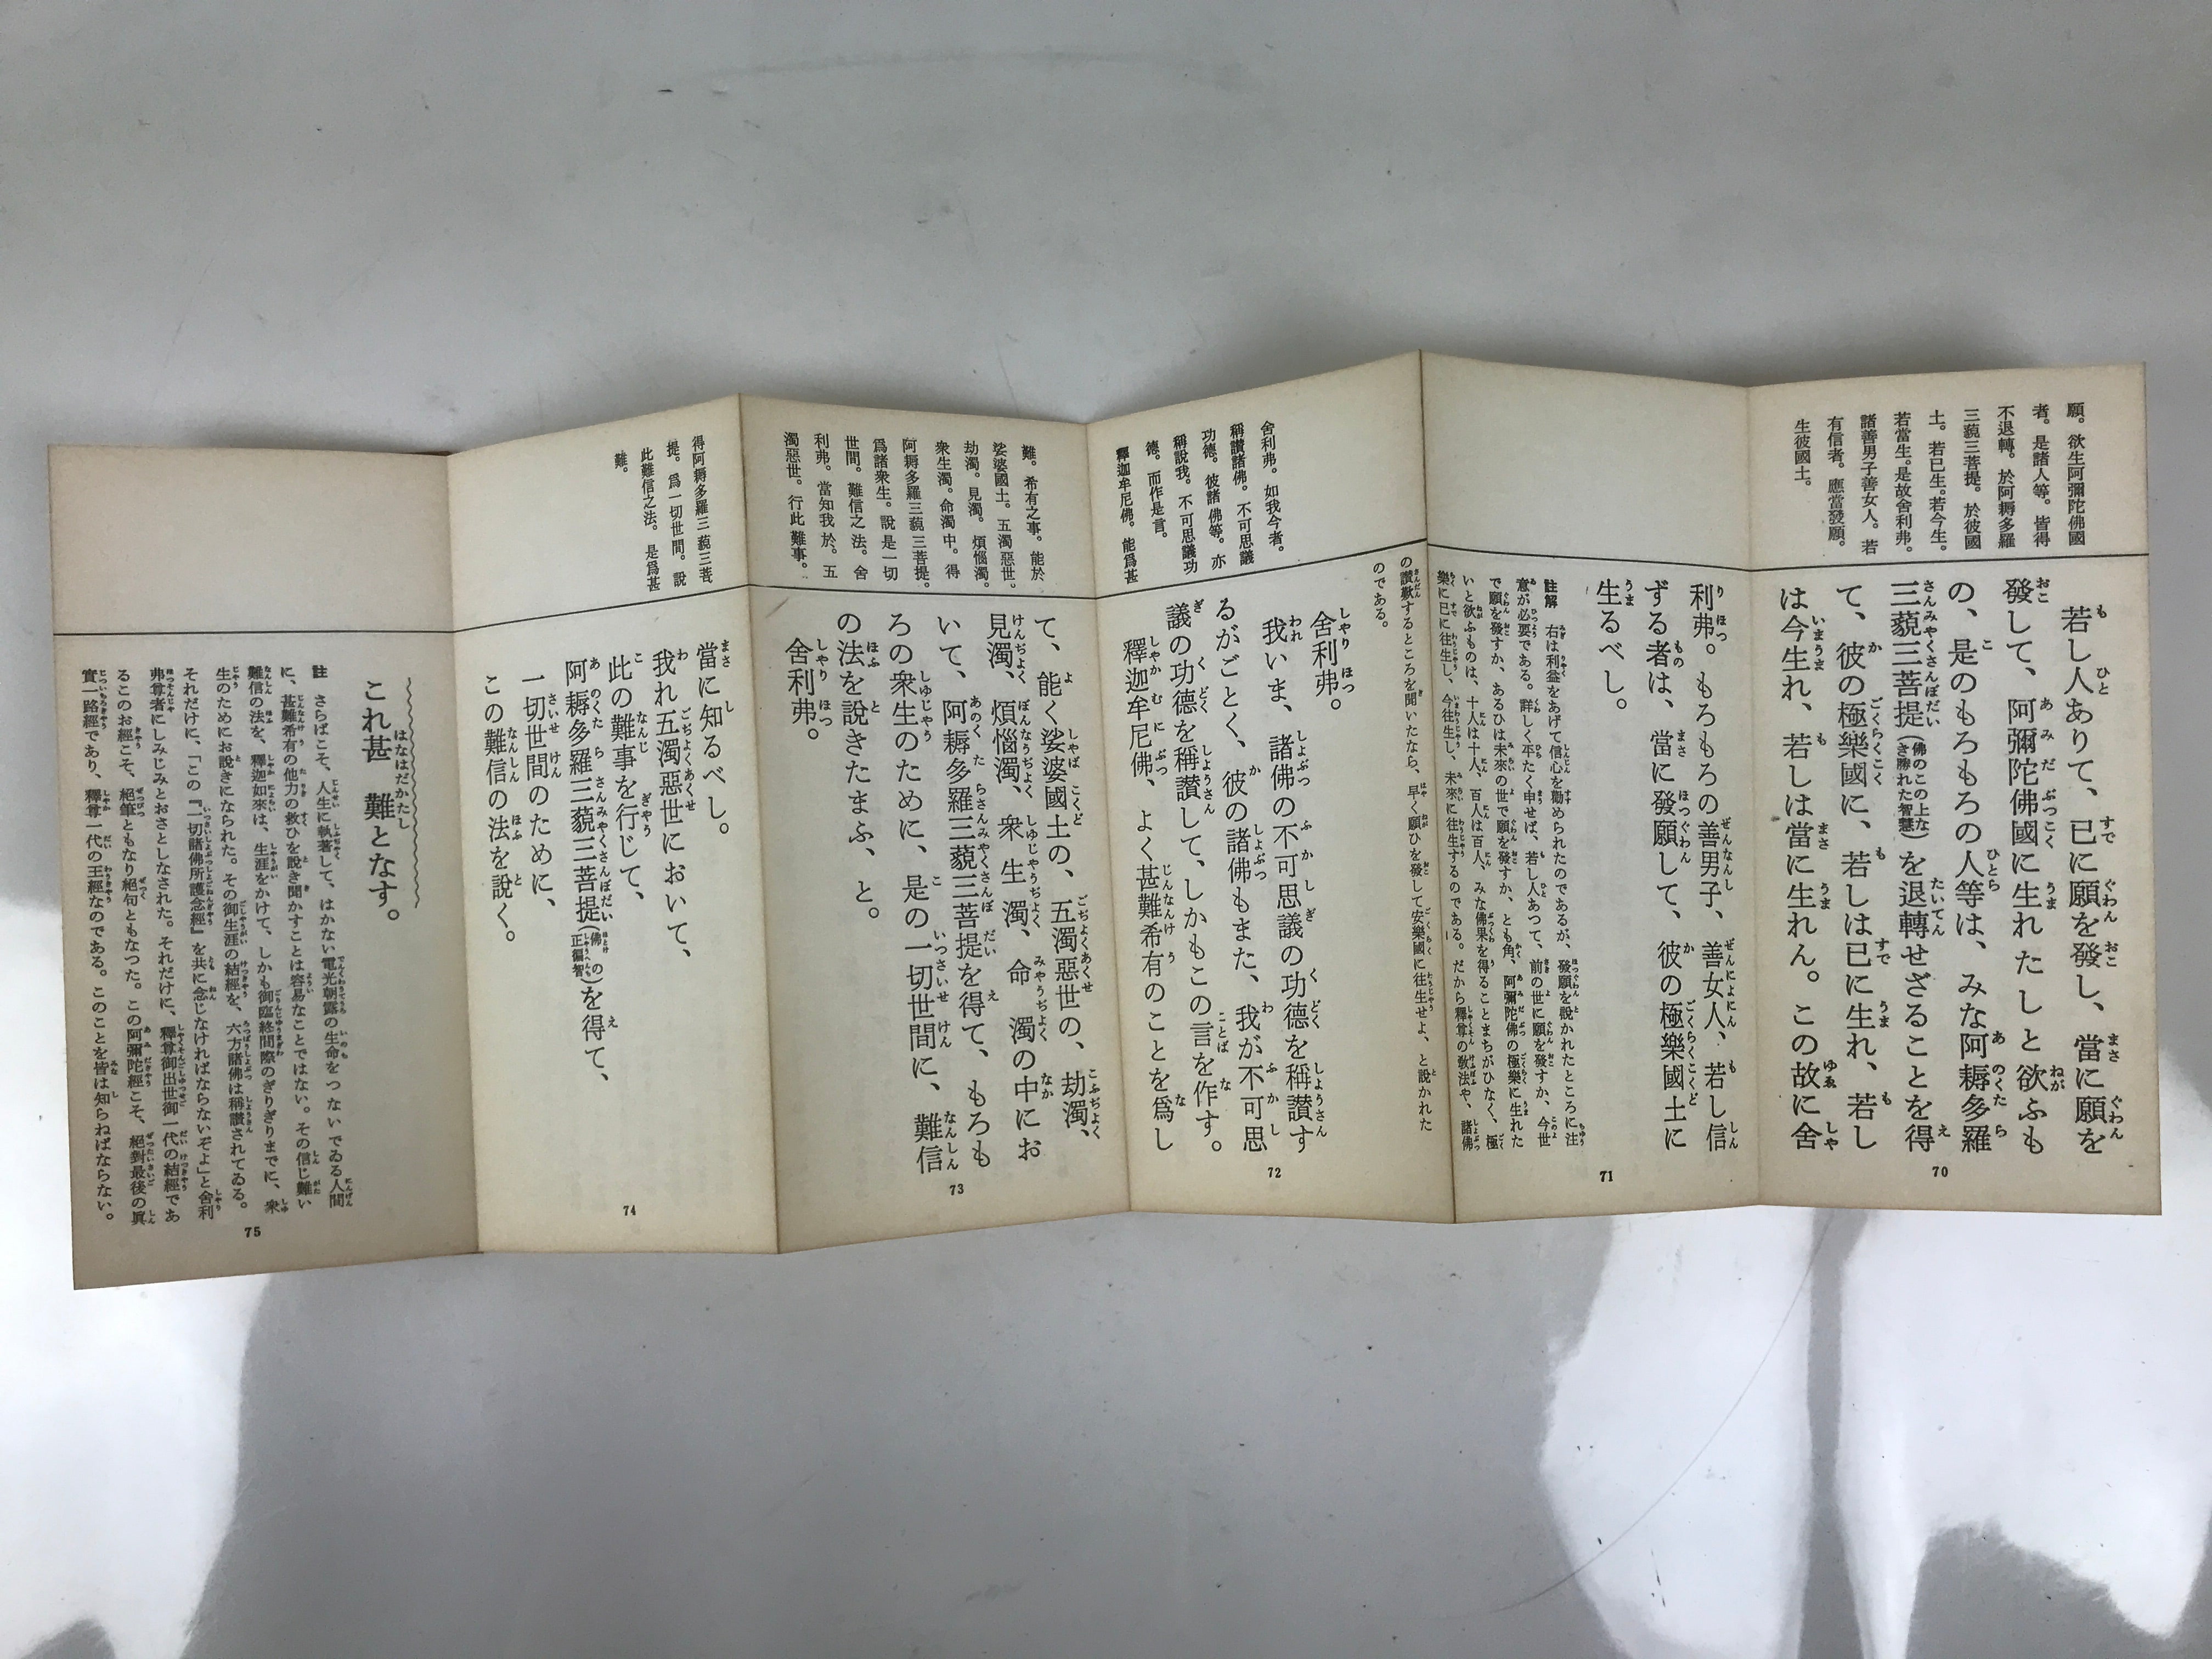 願。欲生阿彌陀佛國
者。是諸人等。皆得
不退轉。於阿耨多羅
三藐三菩提。於彼國
土。若已生。若今生。
若當生。是故舍利弗。
諸善男子善女人。若
有信者。應當發願。
生彼國土。
若し人ありて、已に願を發し、當に願を
發して、阿彌陀佛國に生れたしと欲ふも
の、是のもろもろの人等は、みな阿耨多羅
三藐三菩提(佛のこの上なき勝れた智慧)を退轉せざることを得
て、彼の極樂國に、若しは已に生れ、若し
は今生れ、若しは當に生れん。この故に舍
70
利弗。もろもろの善男子、善女人、若し信
ずる者は、當に發願して、彼の極樂國土に
生るべし。
註解 右は利益をあげて信心を勸められたのであるが、發願を說かれたところに注
意が必要である。詳しく平たく申せば、若し人あつて、前の世に願を發すか、今世
で願を發すか、あるひは未來の世で願を發すか、とも角、阿彌陀佛の極樂に生れた
いと欲ふものは、十人は十人、百人は百人、みな佛果を得ることまちがひなく、極
樂に已に往生し、今往生し、未來に往生するのである。だから釋尊の敎法や、諸佛
71
の讚歎するところを聞いたなら、早く願ひを發して安樂國に往生せよ、と說かれた
のである。
舍利弗。如我今者。
稱讚諸佛。不可思議
功德。彼諸佛等。亦
稱說我。不可思議功
德。而作是言。
釋迦牟尼佛。能爲甚
舍利弗。
我いま、諸佛の不可思議の功德を稱讚す
るがごとく、彼の諸佛もまた、我が不可思
議の功德を稱讚して、しかもこの言を作す。
釋迦牟尼佛、よく甚難希有のことを爲し
72
難。希有之事。能於
娑婆國土。五濁惡世。
劫濁。見濁。煩惱濁。
衆生濁。命濁中。得
阿耨多羅三藐三菩提。
爲諸衆生。說是一切
世間。難信之法。舍
利弗。當知我於。五
濁惡世。行此難事。
て、能く娑婆國土の、五濁惡世の、劫濁、
見濁、煩惱濁、衆生濁、命濁の中にお
いて、阿耨多羅三藐三菩提を得て、もろも
ろの衆生のために、是の一切世間に、難信
の法を說きたまふ、と。
舍利弗。
73
得阿耨多羅三藐三菩
提。爲一切世間。說
此難信之法。是爲甚
難。
當に知るべし。
我れ五濁惡世において、
此の難事を行じて、
阿耨多羅三藐三菩提(佛の正徧智)を得て、
一切世間のために、
この難信の法を說く。
74
これ甚難となす。
註 さらばこそ、人生に執著して、はかない電光朝露の生命をつないでゐる人間
に、甚難希有の他力の救ひを說き聞かすことは容易なことではない。その信じ難い
難信の法を、釋迦如來は、生涯をかけて、しかも御臨終間際のぎりぎりまでに、衆
生のためにお說きになられた。その御生涯の結經を、六方諸佛は稱讚されてゐる。
それだけに、「この『一切諸佛所護念經』を共に念じなければならないぞよ」と舍利
弗尊者にしみじみとおさとしなされた。それだけに、釋尊御出世御一代の結經であ
るこのお經こそ、絕筆ともなり絕句ともなつた。この阿彌陀經こそ、絕對最後の眞
實一路經であり、釋尊一代の王經なのである。このことを皆は知らねばならない。
75